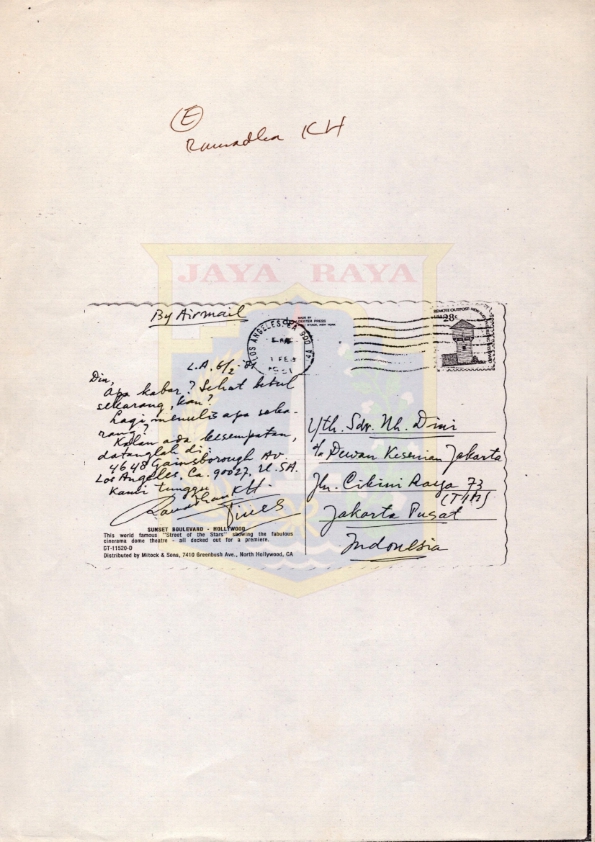 E
Ramadhan KH
JAYA RAYA
By Airmail
LOS ANGELES, CA 900
FEB
1981
28c
L.A. 6/2-81
Din,
Apa kabar? Sehat betul
sekarang, kan?
Lagi menulis apa seka-
rang?
Kalau ada kesempatan,
datanglah di:
4648 Gainsborough Av.
Los Angeles, Ca. 90027, U.SA.
Kami tunggu
Ramadhan KH
SUNSET BOULEVARD - HOLLYWOOD
This world famous "Street of the Stars" showing the fabulous
cinerama dome theatre - all decked out for a premiere.
DT-11520-D
Distributed by Mitock & Sons, 7410 Greenbush Ave., North Hollywood, CA
Yth. Sdr. Nh. Dini
c/o Dewan Kesenian Jakarta
Jln. Cikini Raya 73
(TIM)
Jakarta Pusat
Indonesia